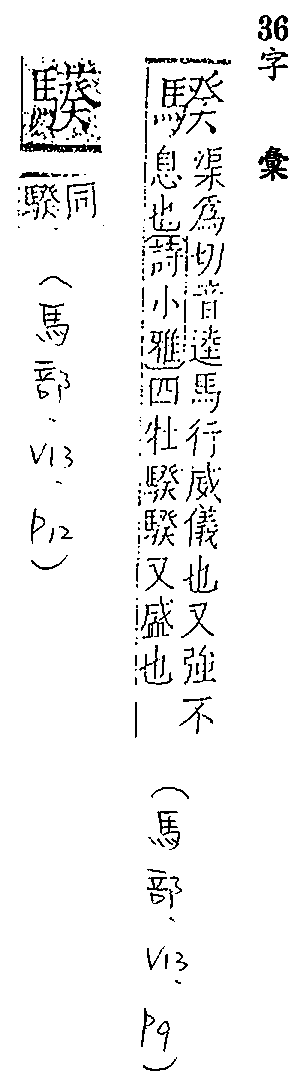 36字彙
騤渠爲切音逵馬行威儀也又強不
息也詩小雅四牡騤騤又盛也
(馬部.V13.P9)
同
騤
(馬部.V13.P12)